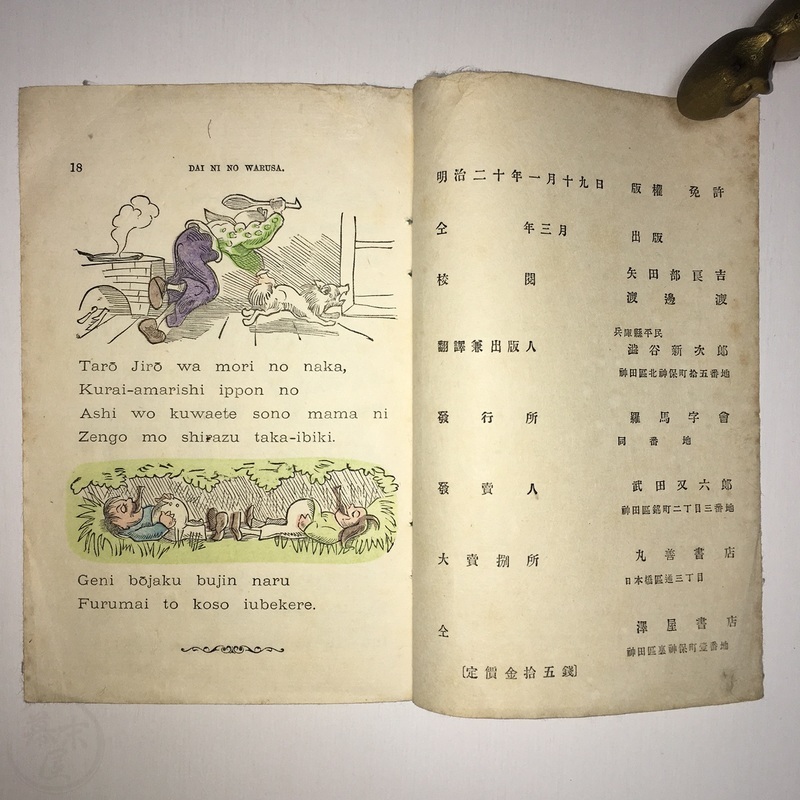 18
DAI NI NO WARUSA.
Tarō Jirō wa mori no naka,
Kurai-amarishi ippon no
Ashi wo kuwaete sono mama ni
Zengo mo shirazu taka-ibiki.
Geni bōjaku bujin naru
Furumai to koso iubekere.
明治二十年一月十九日 版權免許
仝年三月 出版
校閲 矢田部良吉
渡邊渡
兵庫縣平民
翻譯兼出版人 澁谷新次郎
神田區北神保町拾五番地
發行所 羅馬字會
同番地
發賣人 武田又六郎
神田區錦町二丁目三番地
大賣捌所 丸善書店
日本橋區通三丁目
仝 澤屋書店
神田區裏神保町壹番地
〔定價金拾五錢〕